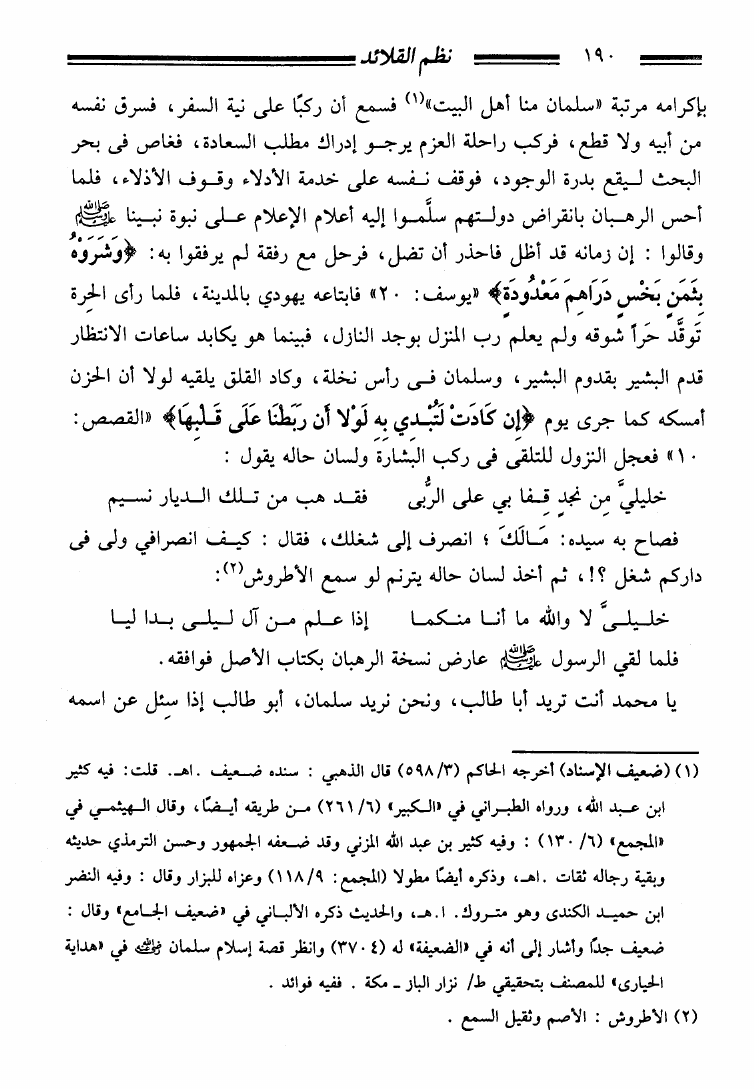 ١٩٠ نظم القلائد
بإكرامه مرتبة «سلمان منا أهل البيت»(١) فسمع أن ركبًا على نية السفر، فسرق نفسه
من أبيه ولا قطع، فركب راحلة العزم يرجو إدراك مطلب السعادة، فغاص فى بحر
البحث ليقع بدرة الوجود، فوقف نفسه على خدمة الأدلاء وقوف الأذلاء، فلما
أحس الرهبان بانقراض دولتهم سلَّموا إليه أعلام الإعلام على نبوة نبينا ﷺ
وقالوا : إن زمانه قد أظل فاحذر أن تضل، فرحل مع رفقة لم يرفقوا به: ﴿وَشَرَوْهُ
بِثَمَنٍ بَخْسٍ دَرَاهِمَ مَعْدُودَةٍ﴾ «يوسف: ٢٠» فابتاعه يهودي بالمدينة، فلما رأى الحرة
تَوقَّد حَرًا شوقه ولم يعلم رب المنزل بوجد النازل، فبينما هو يكابد ساعات الانتظار
قدم البشير بقدوم البشير، وسلمان فى رأس نخلة، وكاد القلق يلقيه لولا أن الحزن
أمسكه كما جرى يوم ﴿إِن كَادَتْ لَتُبْدِي بِهِ لَوْلا أَن رَبَطْنَا عَلَى قَلْبِهَا﴾ «القصص:
١٠» فعجل النزول للتلقى فى ركب البشارة ولسان حاله يقول :
خليليَّ مِن نجدٍ قفا بي على الرُّبى فقد هب من تلك الديار نسيم
فصاح به سيده: مَالَكَ ؛ انصرف إلى شغلك، فقال : كيف انصرافي ولى فى
داركم شغل ؟!، ثم أخذ لسان حاله يترنم لو سمع الأطروش(٢):
خليليَّ لا والله ما أنا منكما إذا علم من آل ليلى بدا ليا
فلما لقي الرسول ﷺ عارض نسخة الرهبان بكتاب الأصل فوافقه.
يا محمد أنت تريد أبا طالب، ونحن نريد سلمان، أبو طالب إذا سئل عن اسمه
(١) (ضعيف الإسناد) أخرجه الحاكم (٥٩٨/٣) قال الذهبي : سنده ضعيف .اهـ. قلت: فيه كثير
ابن عبد الله، ورواه الطبراني في «الكبير» (٢٦١/٦) من طريقه أيضًا، وقال الهيثمى في
«المجمع» (١٣٠/٦) : وفيه كثير بن عبد الله المزني وقد ضعفه الجمهور وحسن الترمذي حديثه
وبقية رجاله ثقات .اهـ، وذكره أيضًا مطولا (المجمع: ١١٨/٩) وعزاه للبزار وقال : وفيه النضر
ابن حميد الكندى وهو متروك. ا.هـ، والحديث ذكره الألباني في «ضعيف الجامع» وقال :
ضعيف جدًا وأشار إلى أنه في «الضعيفة» له (٣٧٠٤) وانظر قصة إسلام سلمان رضي الله عنه في «هداية
الحيارى» للمصنف بتحقيقي ط/ نزار الباز ـ مكة . ففيه فوائد .
(٢) الأطروش : الأصم وثقيل السمع .